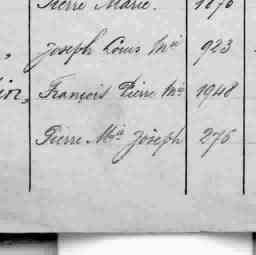 Pierre Marie. 1876
, Joseph Louis Mie 923
François Pierre Mie 1948
Pierre Mie Joseph 276